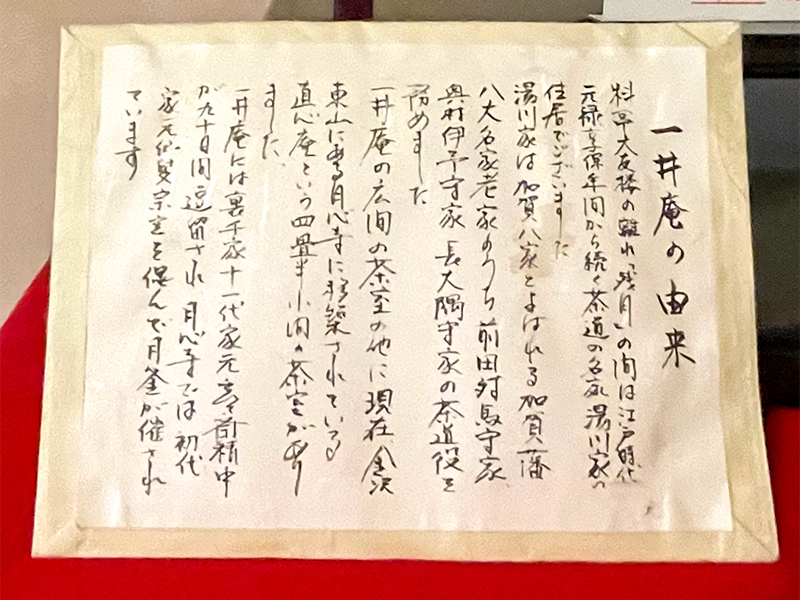 一井庵の由来
料亭大友楼の離れ「残月」の間は江戸時代
元禄享保年間から続く茶道の名家湯川家の
住居でございました
湯川家は加賀八家とよばれる加賀藩
八大名家老家のうち前田対馬守家、
奥村伊予守家 長大隅守家の茶道役を
務めました
一井庵の広間の茶室の他に現在、金沢
東山にある月心寺に移築されている
直心庵という四畳半小間の茶室があり
ました、
一井庵には裏千家十一代家元玄々斎精中
が九十日間逗留され 月心寺では初代
家元仙叟宗室を偲んで月釜が催され
ています